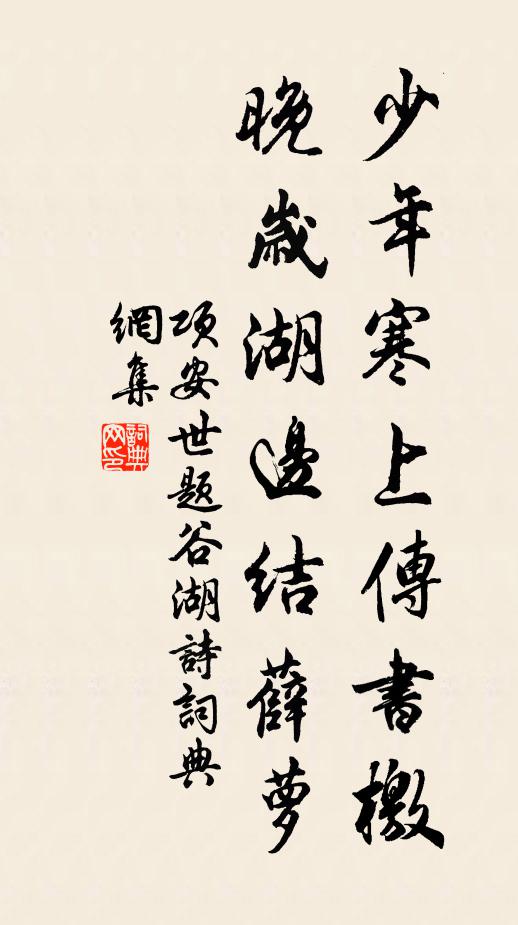 少年寒上傳書檄
晚歲湖邊結薜萝
項安世題谷湖詩詞典
網集
詞典
网印